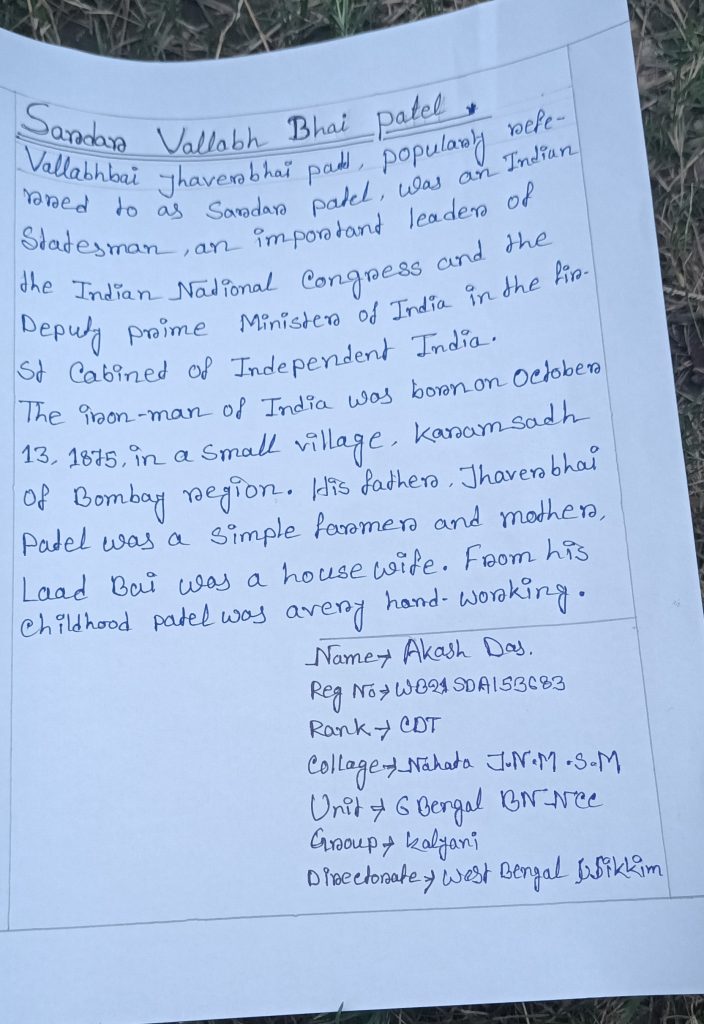 Sardar Vallabh Bhai patel
Vallabhbai Jhaverbhai patel, popularly refe-
rred to as Sardar patel, was an Indian
Statesman, an important leader of
the Indian National Congress and the
Deputy prime Minister of India in the fir-
st Cabined of Independent India.
The iron-man of India was born on October
13, 1875, in a small village, Karamsadh
of Bombay region. His father, Jhaverbhai
Patel was a simple farmer and mother,
Laad Bai was a house wife. From his
childhood patel was a very hard-working.
Name → Akash Das.
Reg No → WB21SDA153683
Rank → CDT
Collage → Nahata J.N.M.S.M
Unit → 6 Bengal BN NCC
Group → Kalyani
Directorate → West Bengal & Sikkim